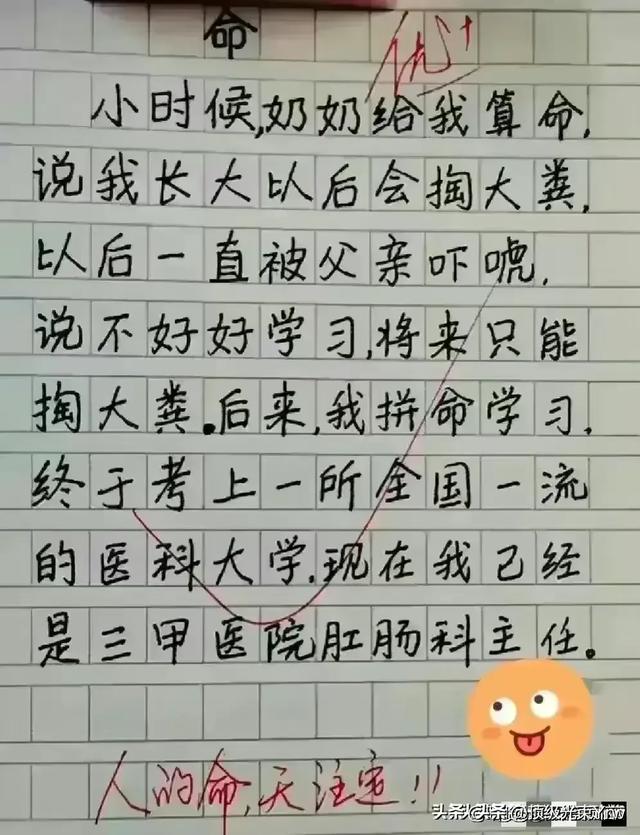 命
优+
小时候,奶奶给我算命,
说我长大以后会掏大粪,
以后一直被父亲吓唬,
说不好好学习,将来只能
掏大粪。后来,我拼命学习,
终于考上一所全国一流
的医科大学.现在我已经
是三甲医院肛肠科主任。
人的命,天注定!!